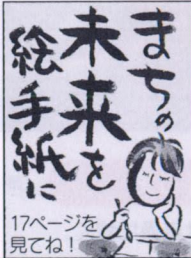 まちの
未来を
絵手紙に
17ページを
見てね！